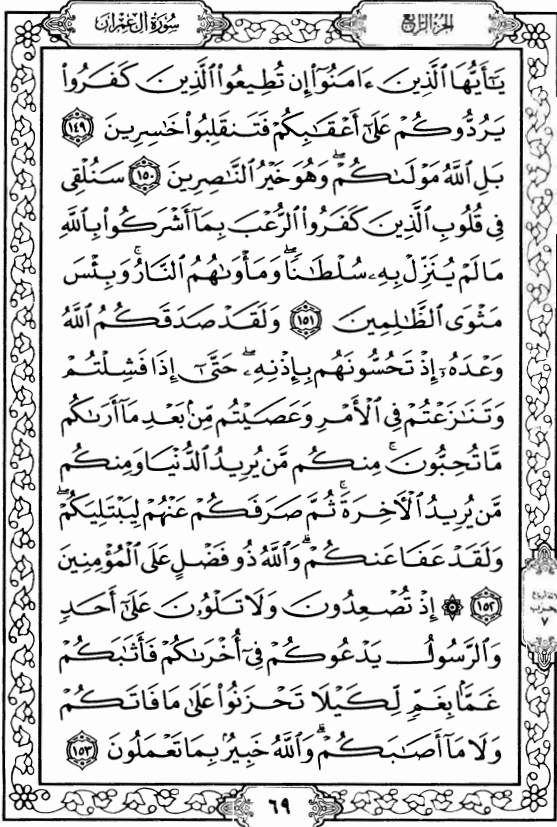 سُورَةُ آلِ عِمْرَانَ
الجُزْءُ الرَّابِعُ
يَٰٓأَيُّهَا ٱلَّذِينَ ءَامَنُوٓا۟ إِن تُطِيعُوا۟ ٱلَّذِينَ كَفَرُوا۟
يَرُدُّوكُمْ عَلَىٰٓ أَعْقَٰبِكُمْ فَتَنقَلِبُوا۟ خَٰسِرِينَ ١٤٩
بَلِ ٱللَّهُ مَوْلَىٰكُمْ ۖ وَهُوَ خَيْرُ ٱلنَّٰصِرِينَ ١٥٠ سَنُلْقِى
فِى قُلُوبِ ٱلَّذِينَ كَفَرُوا۟ ٱلرُّعْبَ بِمَآ أَشْرَكُوا۟ بِٱللَّهِ
مَا لَمْ يُنَزِّلْ بِهِۦ سُلْطَٰنًا ۖ وَمَأْوَىٰهُمُ ٱلنَّارُ ۚ وَبِئْسَ
مَثْوَى ٱلظَّٰلِمِينَ ١٥١ وَلَقَدْ صَدَقَكُمُ ٱللَّهُ
وَعْدَهُۥٓ إِذْ تَحُسُّونَهُم بِإِذْنِهِۦ ۖ حَتَّىٰٓ إِذَا فَشِلْتُمْ
وَتَنَٰزَعْتُمْ فِى ٱلْأَمْرِ وَعَصَيْتُم مِّنۢ بَعْدِ مَآ أَرَىٰكُم
مَّا تُحِبُّونَ ۚ مِنكُم مَّن يُرِيدُ ٱلدُّنْيَا وَمِنكُم
مَّن يُرِيدُ ٱلْـَٔاخِرَةَ ۚ ثُمَّ صَرَفَكُمْ عَنْهُمْ لِيَبْتَلِيَكُمْ ۖ
وَلَقَدْ عَفَا عَنكُمْ ۗ وَٱللَّهُ ذُو فَضْلٍ عَلَى ٱلْمُؤْمِنِينَ
١٥٢ ۞ إِذْ تُصْعِدُونَ وَلَا تَلْوُۥنَ عَلَىٰٓ أَحَدٍ
وَٱلرَّسُولُ يَدْعُوكُمْ فِىٓ أُخْرَىٰكُمْ فَأَثَٰبَكُمْ
غَمًّۢا بِغَمٍّ لِّكَيْلَا تَحْزَنُوا۟ عَلَىٰ مَا فَاتَكُمْ
وَلَا مَآ أَصَٰبَكُمْ ۗ وَٱللَّهُ خَبِيرٌۢ بِمَا تَعْمَلُونَ ١٥٣
حزب
٧
٦٩